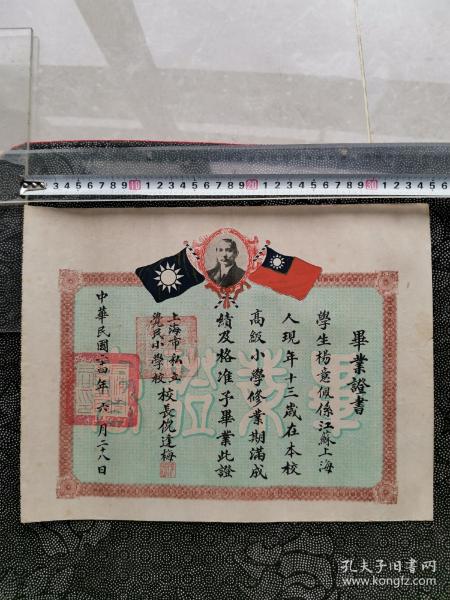 畢業證書
學生楊意佩係江蘇上海
人現年十三歲在本校
高級小學修業期滿成
績及格准予畢業此證
上海市私立
覺民小學校
校長倪達梅
中華民國二十四年六月二十八日
3 4 5 6 7 8 9 10 1 2 3 4 5 6 7 8 9 20 1 2 3 4 5 6 7 8 9 30 1 2 3 4 5
孔夫子旧书网
www.kongfz.com